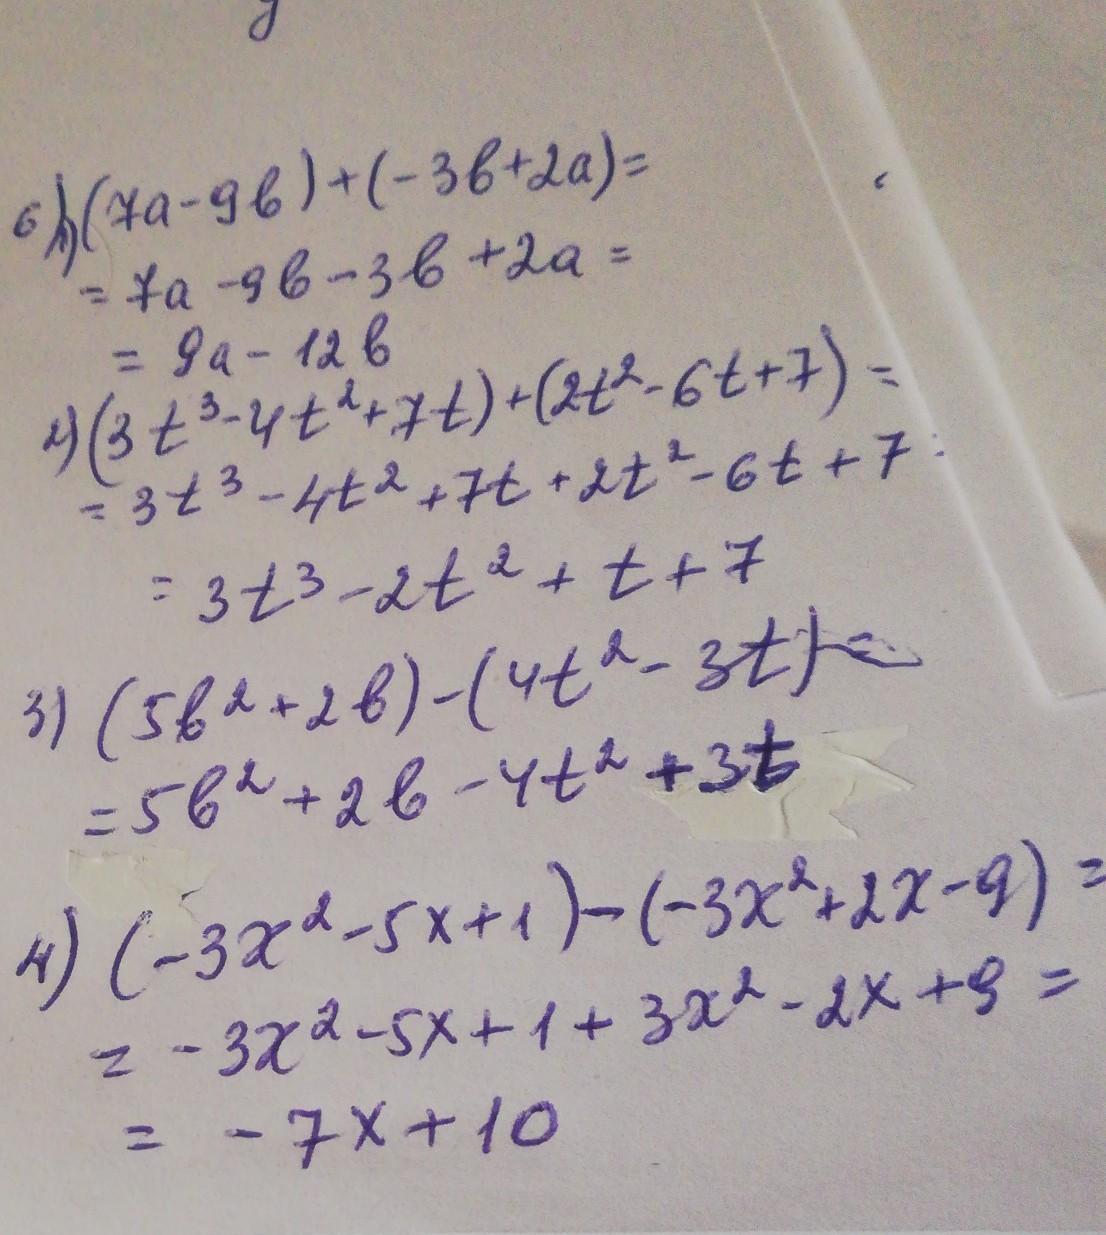 у
6) 1) (7a-9b)+(-3b+2a)=
= 7a-9b-3b+2a=
= 9a-12b
2) (3t³-4t²+7t)+(2t²-6t+7)=
= 3t³-4t²+7t+2t²-6t+7=
= 3t³-2t²+t+7
3) (5b²+2b)-(4t²-3t)=
= 5b²+2b-4t²+3t
4) (-3x²-5x+1)-(-3x²+2x-9)=
= -3x²-5x+1+3x²-2x+9=
= -7x+10